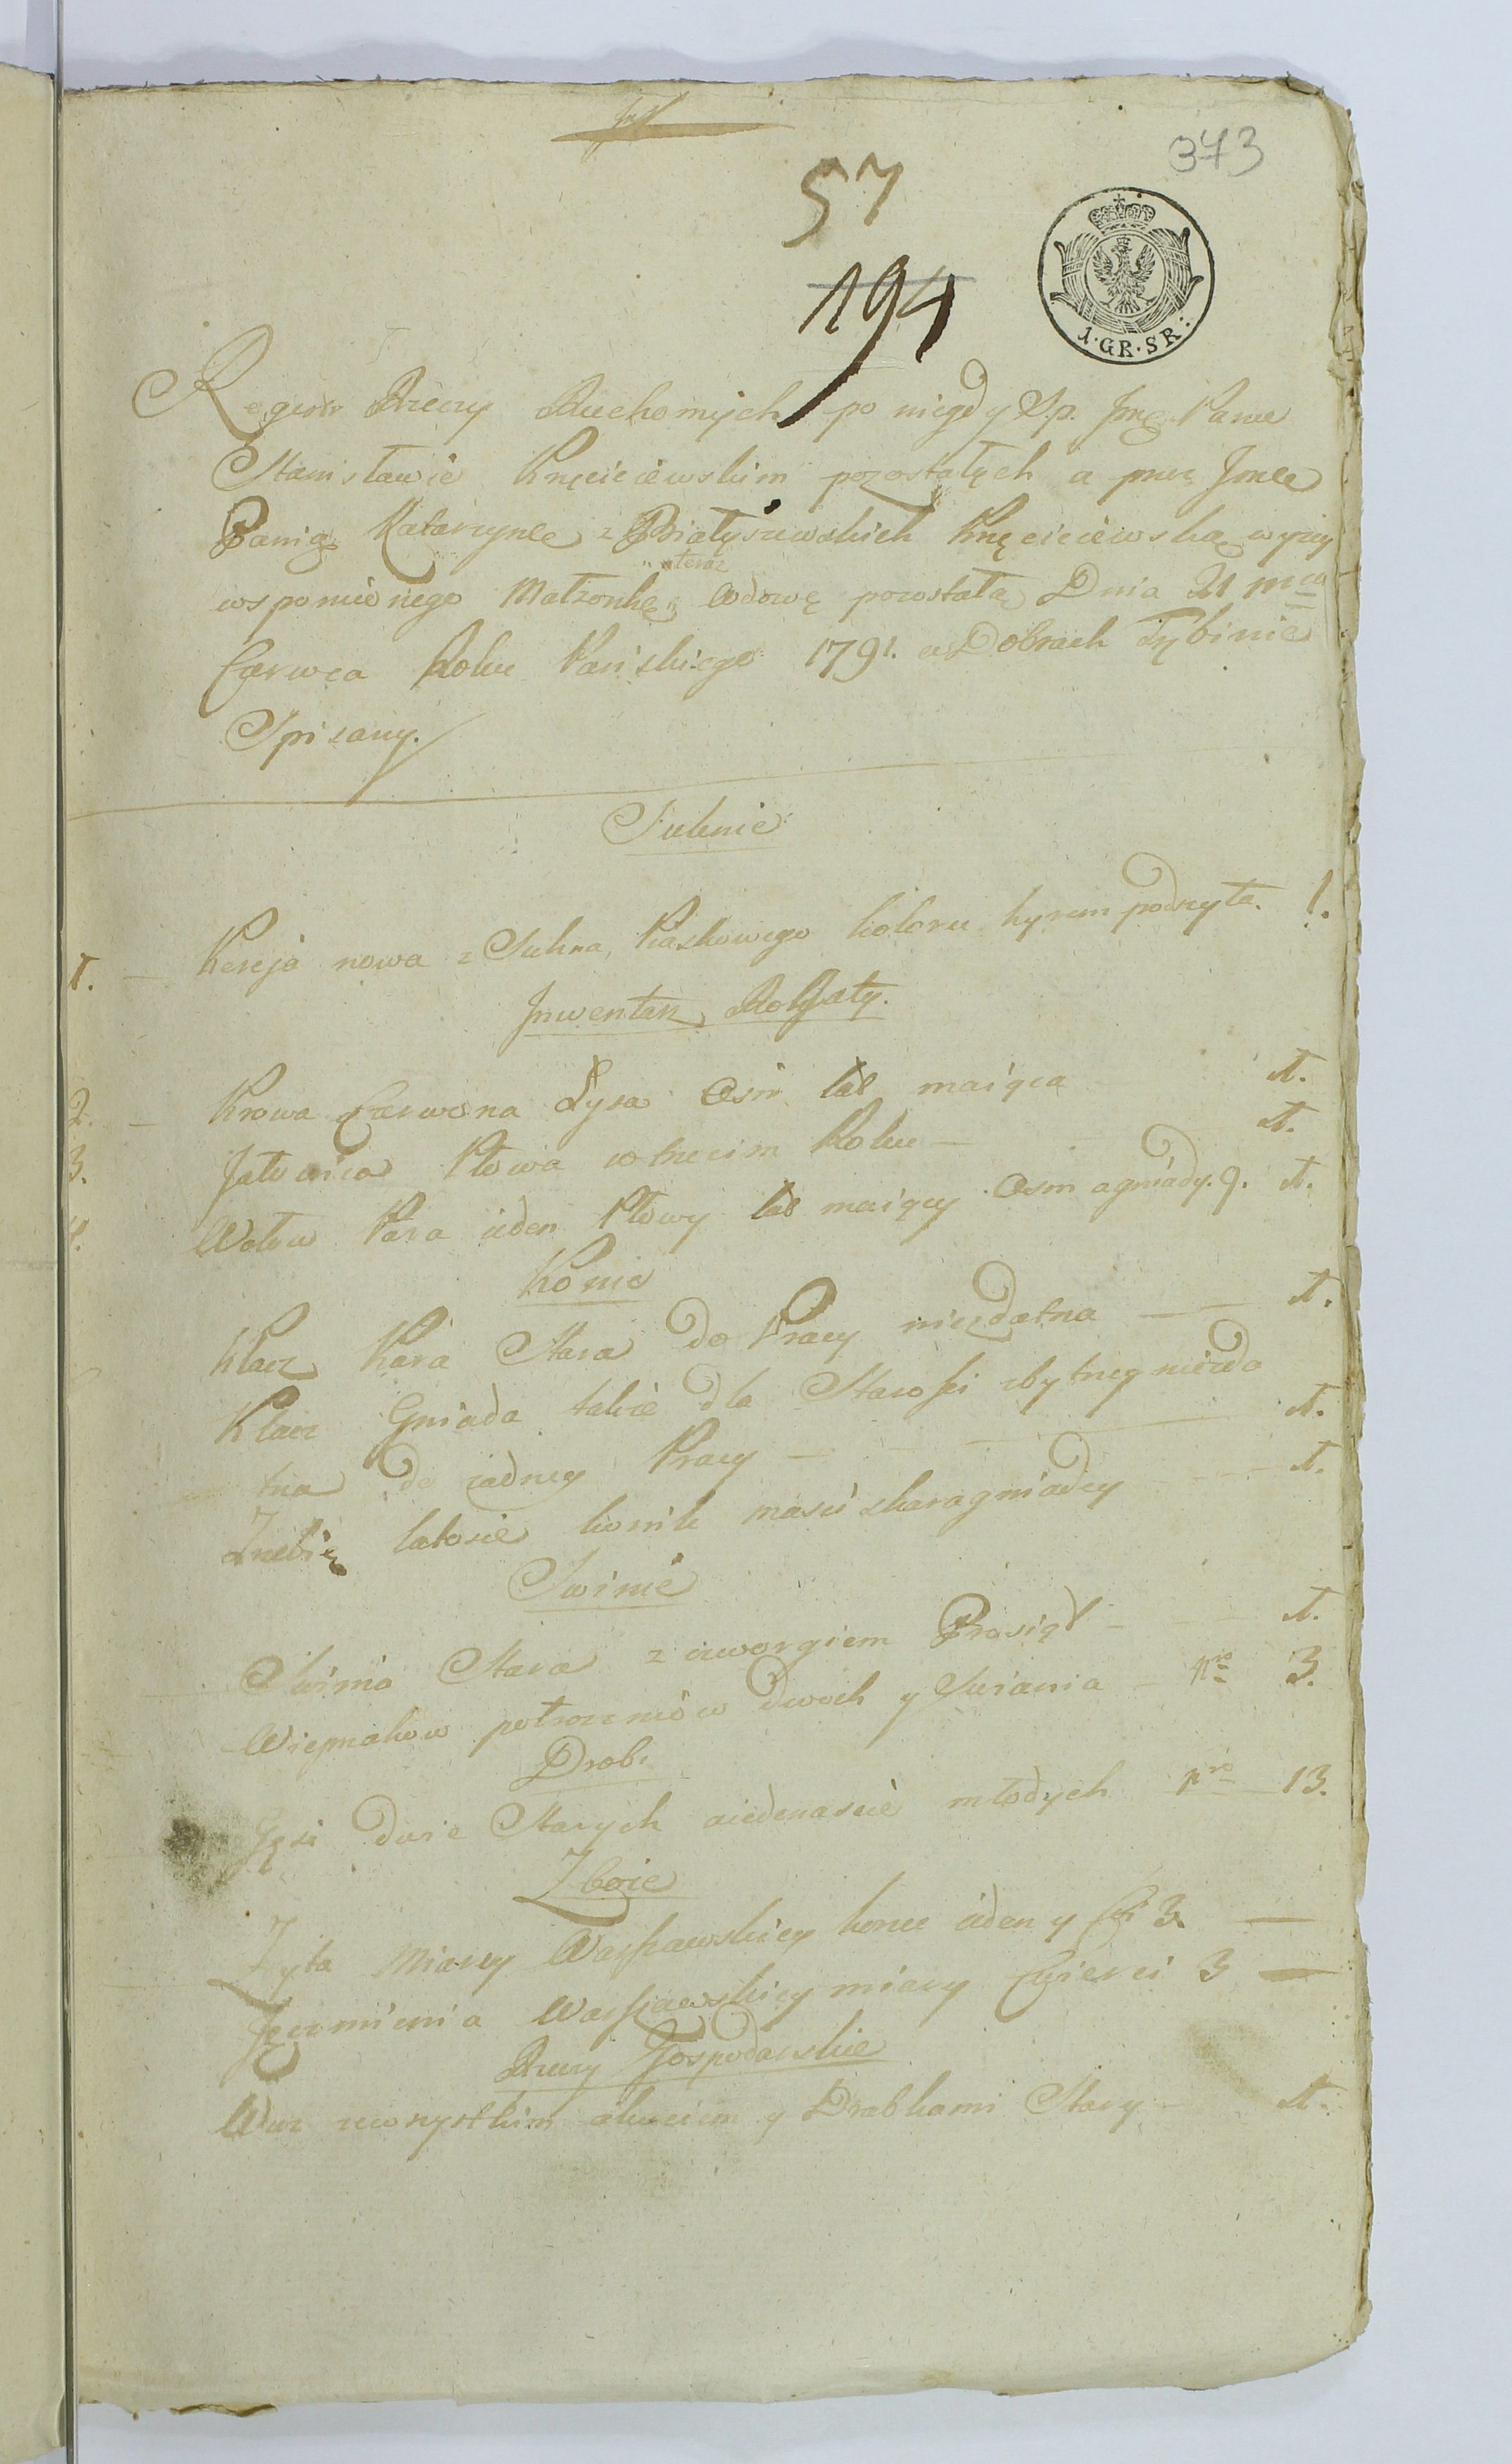 373
57
194
1. GR. SR:
Regestr Rzeczy Ruchomych po niegdy S.p. Jmę Panu
Stanisławie Knęciciewskim pozostałych a przez Jmcę
Panią Katarzynę z Białyszewskich Knęciciewską wyży
wspomnionego Małżonkę, a teraz Wdowę pozostałą Dnia 21 mca
Czerwca Roku Pańskiego 1791. w Dobrach Łybinie
Spisany.
Suknie
1. — Kereja nowa z Sukna Piaskowego koloru kyrem podszyta. 1.
Jnwentarz Rogaty.
2. — Krowa Czerwona Łysa Ośm lat maiąca 1.
3. Jałowica Płowa w trzecim Roku — 1.
4. Wołow Para ieden Płowy lat maiący Osm a gniady. 9. 1.
Konie
Klacz Kara Stara do Pracy niezdatna — — 1.
Klacz Gniada takie dla Starości zbytney niezda
tna do żadney Pracy — 1.
Zrebię latosie konik maści skarogniadey — 1.
Swinie
Swinia Stara z czworgiem Prosiąt — 1.
Wieprzakow połroczniów dwoch y Swinia — nro 3.
Drob.
Gęsi dwie Starych a iedenaście młodych nro 13.
Zboże
Zyta Miary Warszawskiey korzec ieden y 3 —
Jęczmienia Warszawskiey miary Cwierci 3 —
Rzeczy Gospodarskie
Wuz zewszystkim okuciem y Drabkami Stary — 1.